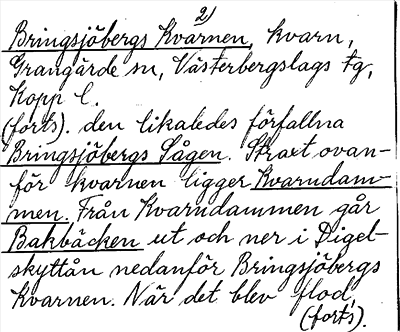 2)
Bringsjöbergs Kvarnen, kvarn,
Grangärde sn, Västerbergslags tg,
Kopp l.
(forts). den likaledes förfallna
Bringsjöbergs Sågen. Strax ovan-
för kvarnen ligger Kvarndam-
men. Från Kvarndammen går
Bakbäcken ut och ner i Digel-
skyttån nedanför Bringsjöbergs
Kvarnen. När det blev flod,
(forts).